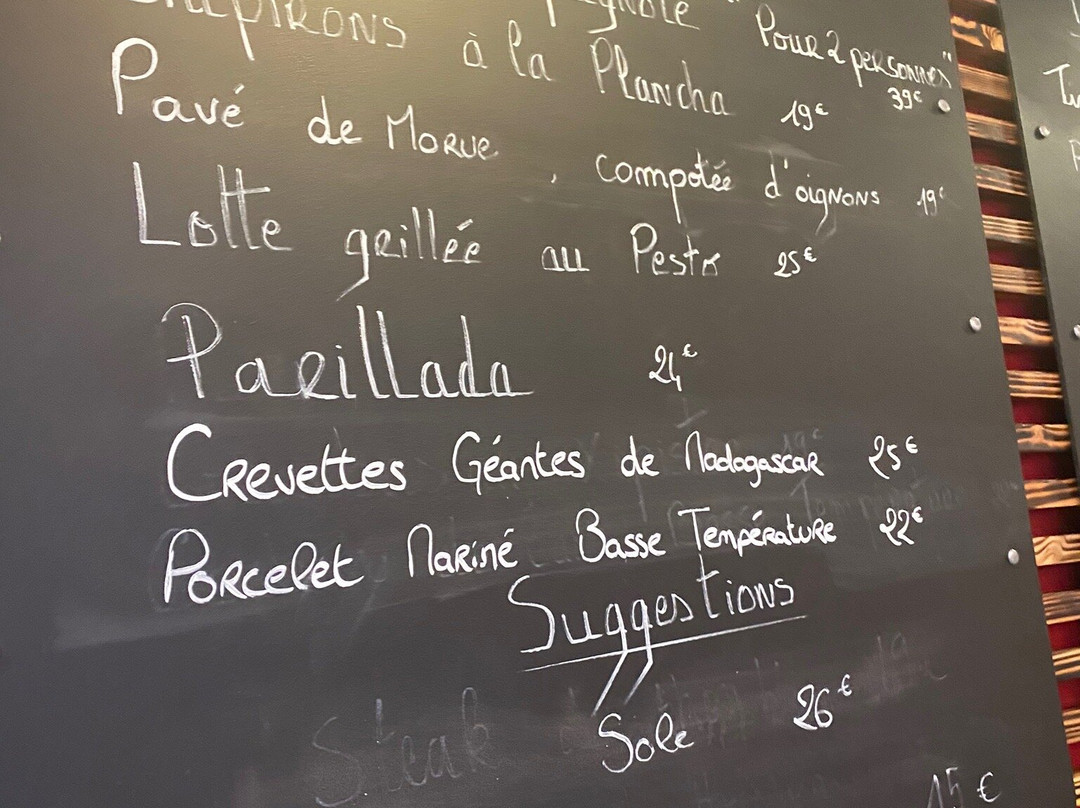 "Pour 2 personnes"
39€
à la Plancha 19€
Pavé de Morue, compotée d'oignons 19€
Lotte grillée au Pesto 25€
Parillada 24€
Crevettes Géantes de Madagascar 25€
Porcelet Mariné Basse Température 22€
Suggestions
Steak
Sole 26€
15 €